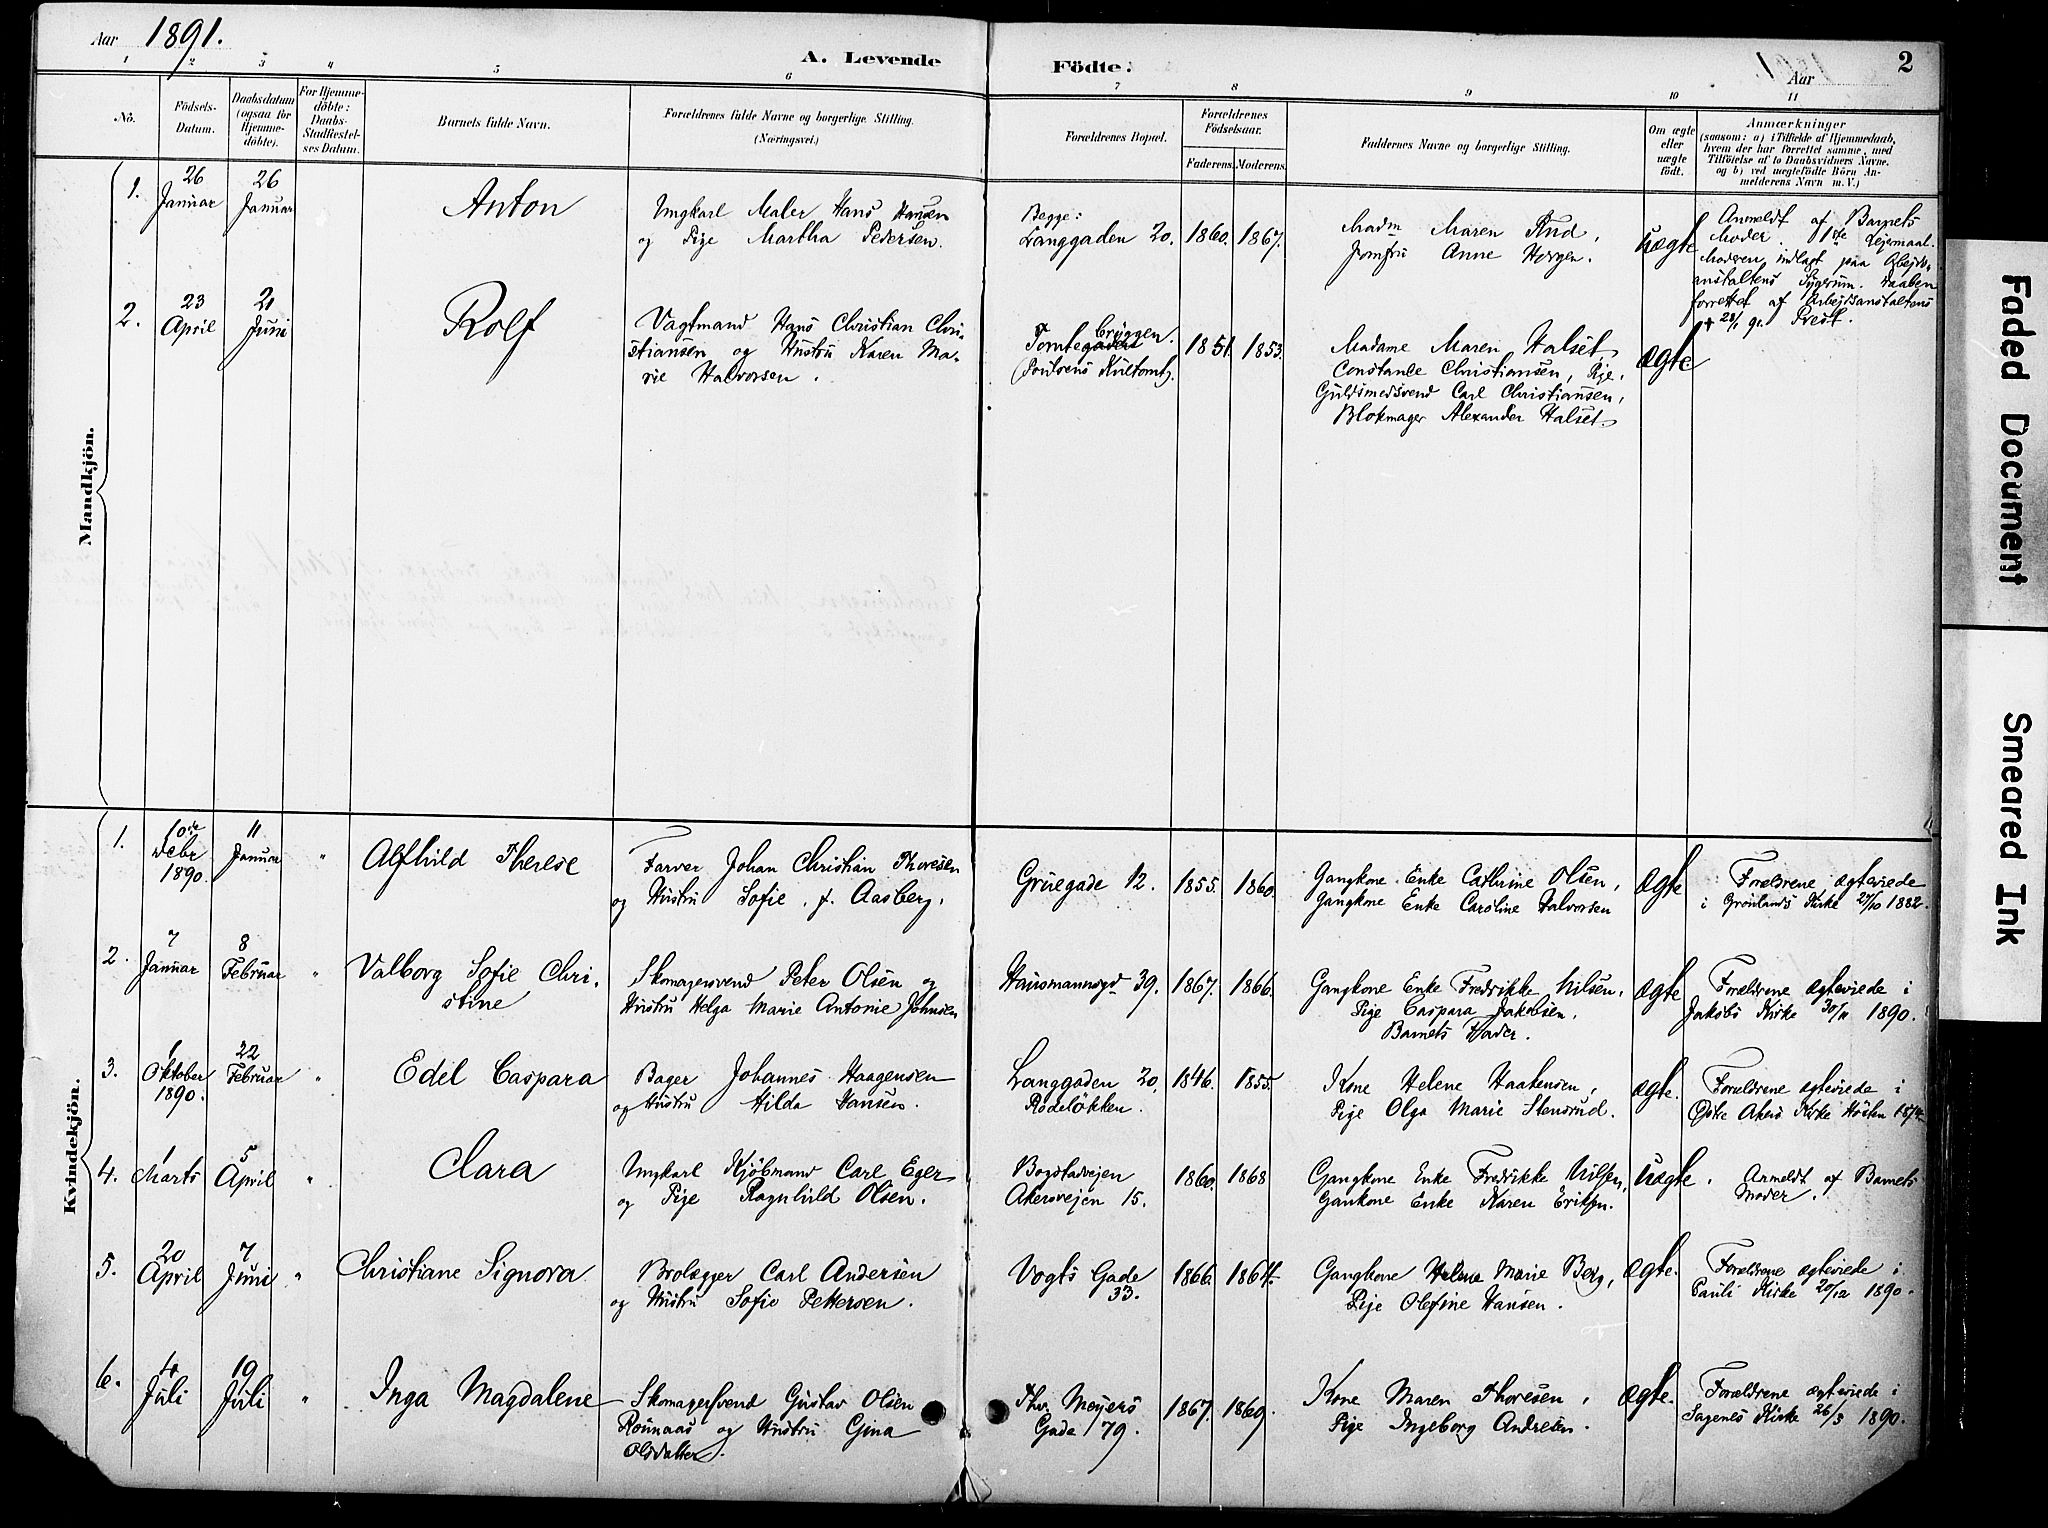 Aar 1891.
A. Levende Födte.
Aar 1891.
2
1 2 3 4 5 6 7 8 9 10 11
No.
Födsels-
Datum.
Daabsdatum
(ogsaa for
Hjemme-
döbte).
For Hjemme-
döbte:
Daabs-
Stadfæstel-
ses Datum.
Barnets fulde Navn.
Forældrenes fulde Navne og borgerlige Stilling.
(Næringsvei.)
Forældrenes Bopæl.
Forældrenes
Födselsaar.
Faderens. Moderens.
Faddernes Navne og borgerlige Stilling.
Om ægte
eller
uægte
födt.
Anmærkninger
(saasom: a) i Tilfælde af Hjemmedaab,
hvem der har forrettet samme, med
Tilföielse af to Daabsvidners Navne.
og b) ved uægtefödte Börn An-
melderens Navn m. V.)
Mandkjön.
1.
26
Januar
26
Januar
Anton
Ungkarl Maler Hans Hansen
og Pige Martha Pedersen.
Begge:
Langgaden 20.
1860. 1867.
Madm Maren Rud,
Jomfru Anne Horgen.
uægte
Anmeldt af Barnets
Moder. 1ste Leiemaal.
Moderen indlagt paa Arbejds-
anstaltens Sygerum. Daaben
forrettet af Arbejdsanstaltens
† 28/1 91. Prest.
2.
23
April
21
Juni
Rolf
Vagtmand Hans Christian Chri-
stiansen og Hustru Karen Ma-
rie Halvorsen.
Tomtebryggen.
1851. 1853.
Madame Maren Halset,
Constance Christiansen, Pige,
Guldsmedsvend Carl Christiansen,
Blokmager Alexander Halset
ægte
Kvindekjön.
1.
10de
Febr
1890.
11
Januar
"
Alfhild Therese
Farver Johan Christian Thoresen
og Hustru Sofie, f. Aasberg.
Grüegade 12.
1855. 1860.
Gangkone Enke Cathrine Olsen,
Gangkone Enke Caroline Halvorsen
ægte
Forældrene ægteviede
i Grønlands Kirke 27/10 1882.
2.
7
Januar
8
Februar
"
Valborg Sofie Chri-
stine
Skomagersvend Peter Olsen og
Hustru Helga Marie Antonie Johnsen
Hausmannsgd 39.
1867. 1866.
Gangkone Enke Fredrikke Nilsen,
Pige Caspara Jakobsen.
Barnets Fader.
ægte
Forældrene ægteviede i
Jakobs Kirke 30/11 1890.
3.
1
Oktober
1890.
22
Februar
"
Edel Caspara
Bager Johannes Haagensen
og Hustru Hilda Hansen.
Langgaden 20,
Rodeløkken.
1846. 1855.
Kone Helene Haakensen,
Pige Olga Marie Stensrud.
ægte.
Forældrene ægteviede i
Østre Akers Kirke Høsten 1874.
4.
1
Marts
5
April
"
Clara
Ungkarl Kjøbmand Carl Eger
og Pige Ragnhild Olsen.
Bogstadvejen
Akersvejen 15.
1860. 1868
Gangkone Enke Fredrikke Nilsen,
Gankone Enke Karen Eriksen.
uægte.
Anmeldt af Barnets
Moder.
5.
20
April
7
Juni
"
Christiane Signora
Brolægger Carl Andersen
og Hustru Sofie Pettersen.
Vogts Gade
33.
1866. 1864.
Gangkone Helene Marie Berg,
Pige Olefine Hansen.
ægte.
Forældrene ægteviede i
Pauli Kirke 20/12 1890.
6.
4
Juli
19
Juli
"
Inga Magdalene
Skomagersvend Gustav Olsen
Rønnaas og Hustru Gina
Olsdatter.
Thv. Meyers
Gade 79.
1867. 1869.
Kone Maren Thoresen,
Pige Ingeborg Andresen.
ægte.
Forældrene ægteviede i
Sagenes Kirke 26/3 1890.
Faded Document
Smeared Ink